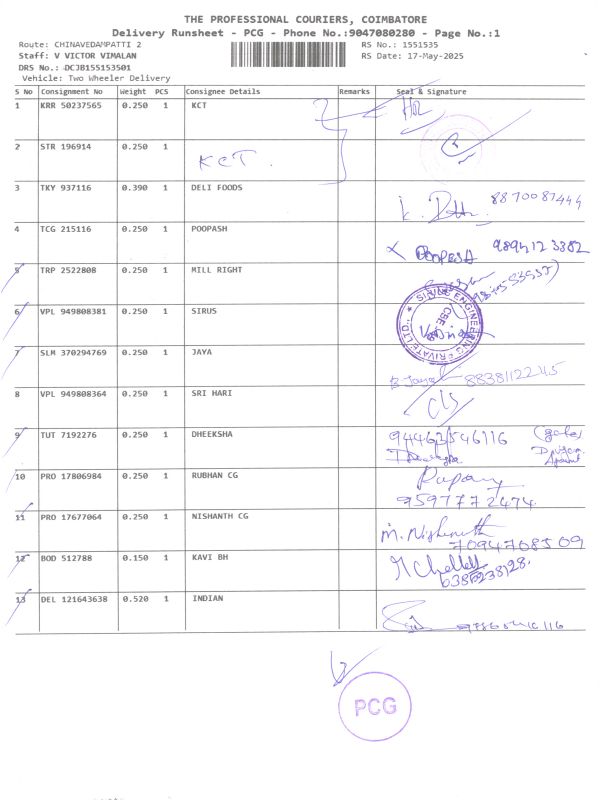 THE PROFESSIONAL COURIERS, COIMBATORE
Delivery Runsheet - PCG - Phone No.:9047080280 - Page No.:1
Route: CHINAVEDAMPATTI 2 RS No.: 1551535
Staff: V VICTOR VIMALAN RS Date: 17-May-2025
DRS No.: DCJB155153501
Vehicle: Two Wheeler Delivery
S No Consignment No Weight PCS Consignee Details Remarks Seal & Signature
1 KRR 50237565 0.250 1 KCT
2 STR 196914 0.250 1 KCT.
3 TKY 937116 0.390 1 DELI FOODS 8870087444
4 TCG 215116 0.250 1 POOPASH POOPESA 9894123382
5 TRP 2522808 0.250 1 MILL RIGHT
6 VPL 949808381 0.250 1 SIRUS SIRING ENGINEERING PRIVATE LTD., CBE-49
7 SLM 370294769 0.250 1 JAYA 8838112245
8 VPL 949808364 0.250 1 SRI HARI
9 TUT 7192276 0.250 1 DHEEKSHA 94463546116
10 PRO 17806984 0.250 1 RUBHAN CG 9597772474
11 PRO 17677064 0.250 1 NISHANTH CG M. Nishanth 7094708509
12 BOD 512788 0.150 1 KAVI BH
13 DEL 121643638 0.520 1 INDIAN
PCG